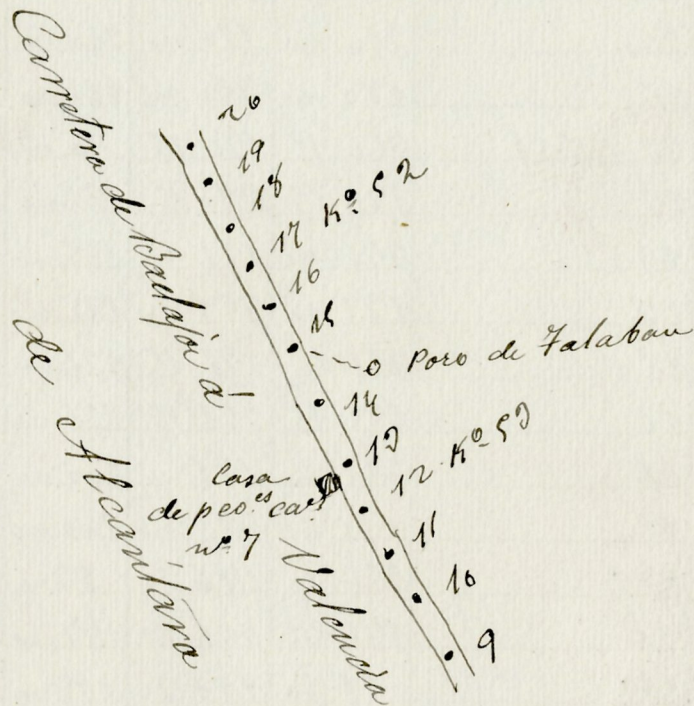 Carretera de Badajoz á Valencia
de Alcántara
20
19
18
17 Kº 52
16
15
Pozo de Talaban
14
13
12 Kº 53
Casa
de peo.es cas
nº 7
11
10
9